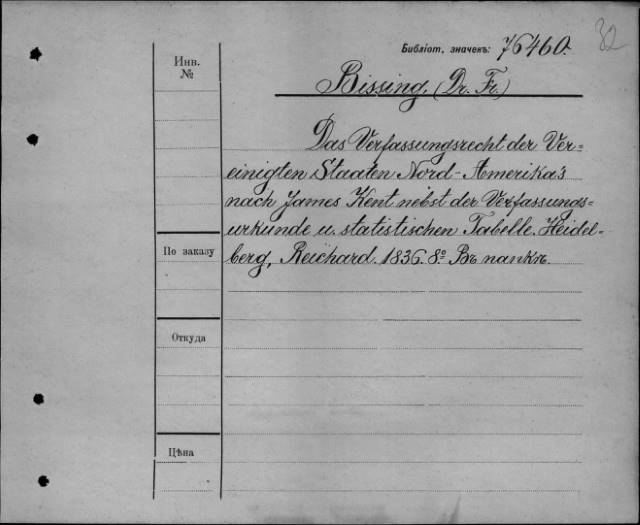 32
Библіот. значекъ: 76460.
Инв.
№
Bissing, (Dr. Fr.)
Das Verfassungsrecht der Ver-
einigten Staaten Nord-Amerika's
nach James Kent nebst der Verfassungs-
urkunde u. statistischen Tabelle. Heidel-
berg, Reichard. 1836. 8º. Въ папкѣ.
По заказу
Откуда
Цѣна